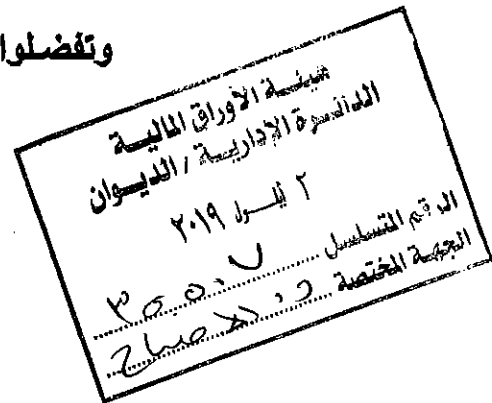 وتفضلوا
هيئة الأوراق المالية
الدائرة الإدارية / الديوان
٢ أيلول ٢٠١٩
الرقم التسلسل
الجهة المختصة الإفصاح